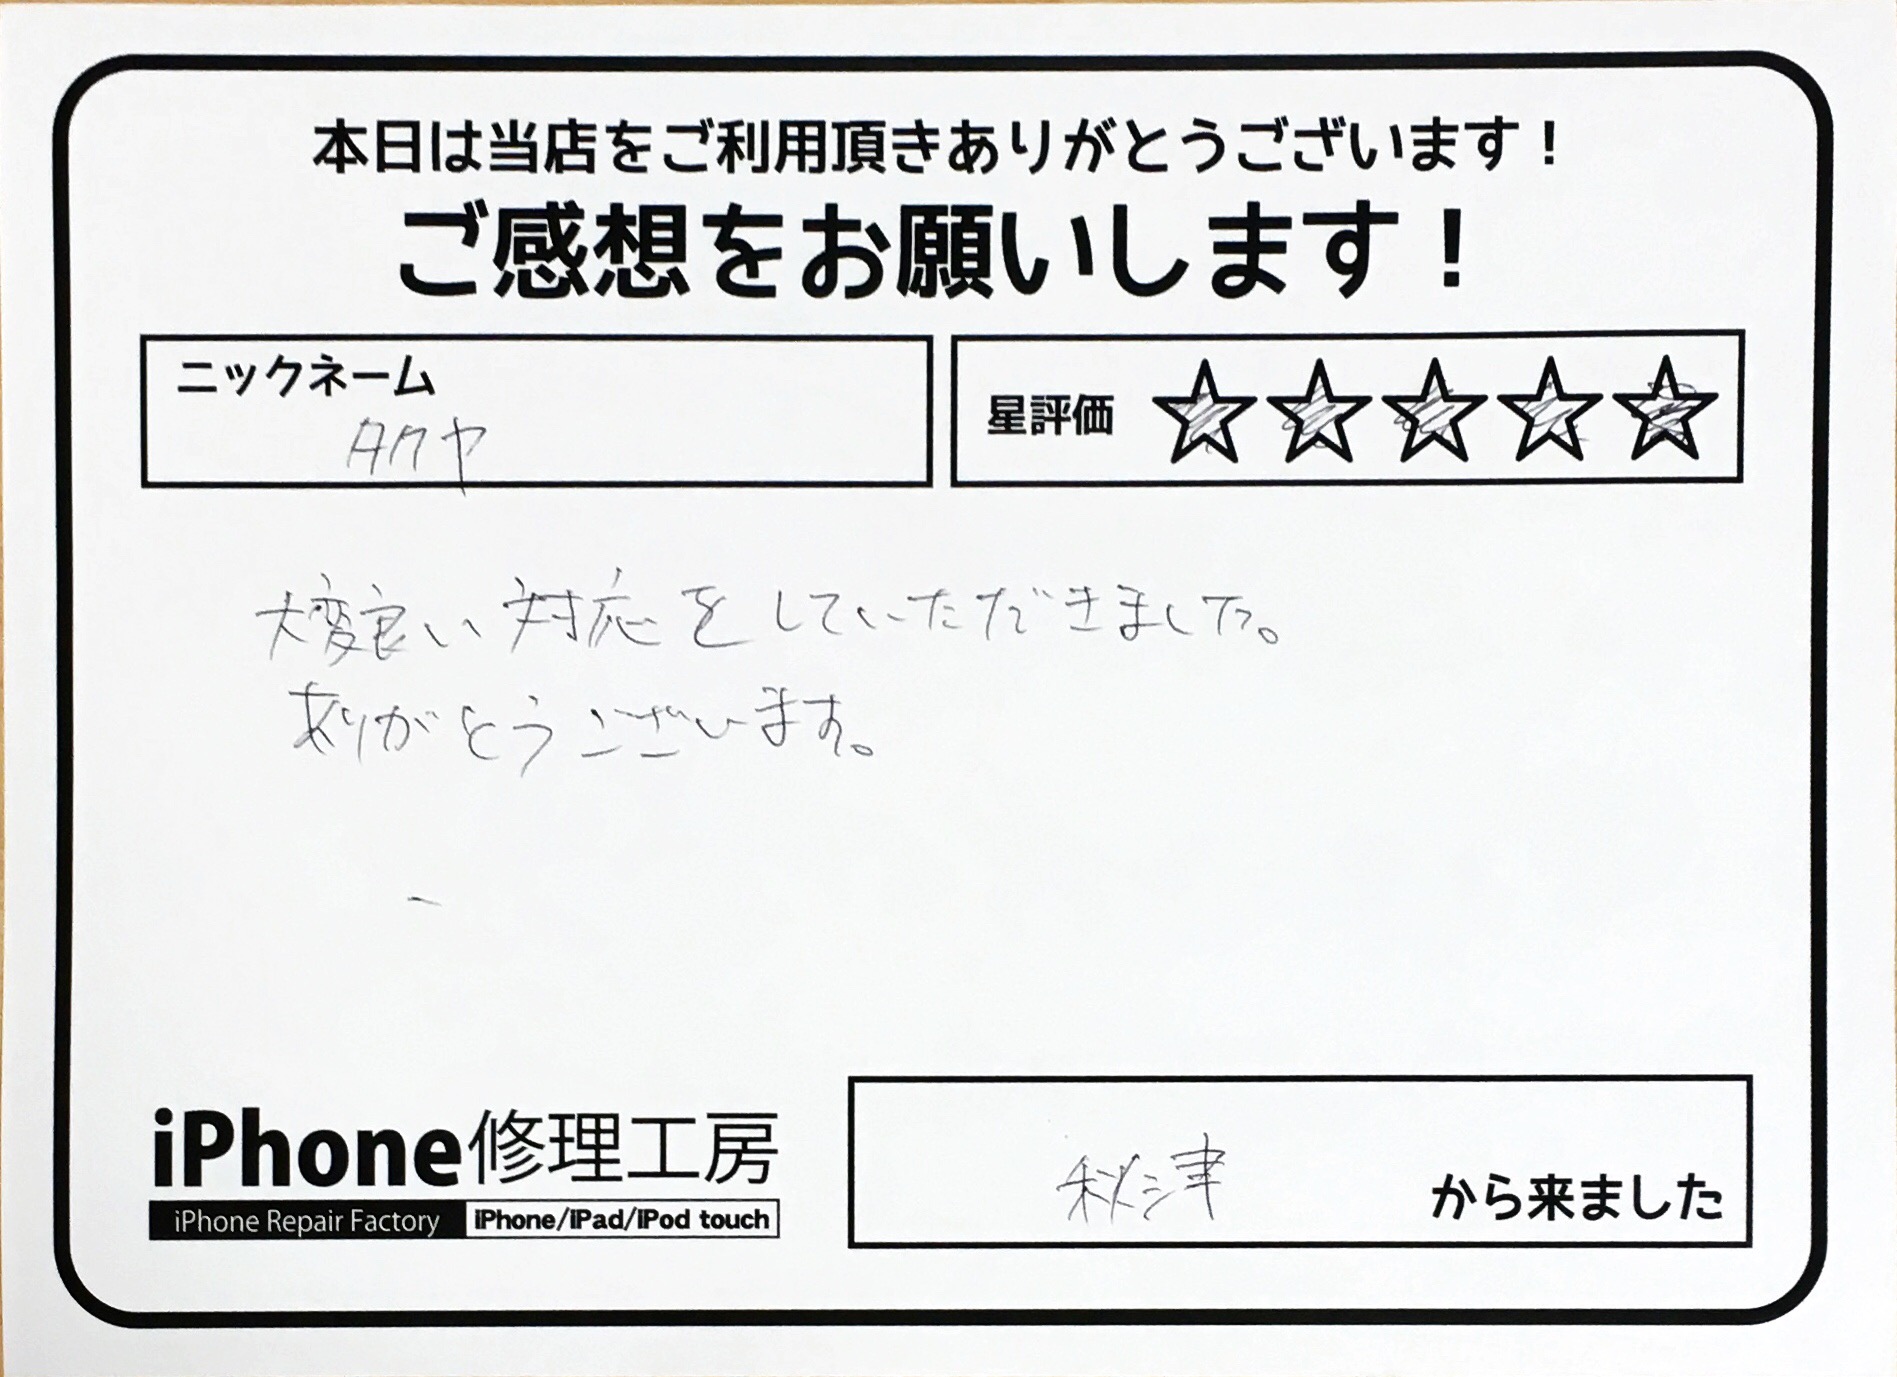 本日は当店をご利用頂きありがとうございます！
ご感想をお願いします！
ニックネーム
タクヤ
星評価 ☆☆☆☆☆
大変良い対応をしていただきました。
ありがとうございます。
iPhone修理工房
iPhone Repair Factory iPhone/iPad/iPod touch
秋津 から来ました